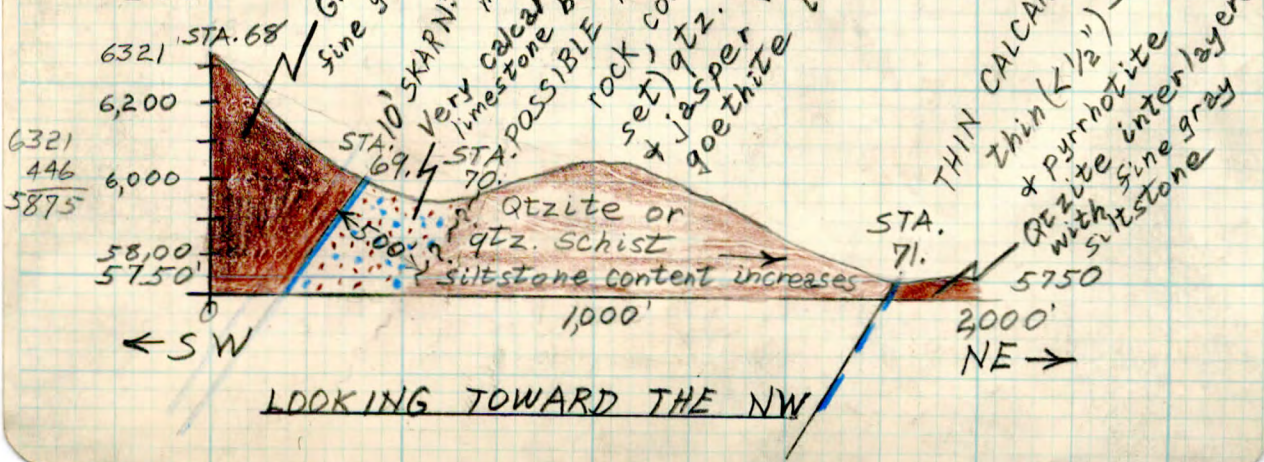 STA. 68
6321
fine g
6,200
6,000
58,00
57.50'
6321
446
5875
STA. 69.
10' SKARN
Very calcar
limestone b
STA. 70.
POSSIBLE
rock, co
set) qtz.
& jasper
goethite
500'
? ? ?
Qtzite or
qtz. schist
siltstone content increases
THIN CALCAR
thin (<1/2")
& pyrrhotite
Qtzite interlayer
with fine gray
siltstone
STA. 71.
5750
0
1,000'
2,000'
← SW
NE →
LOOKING TOWARD THE NW